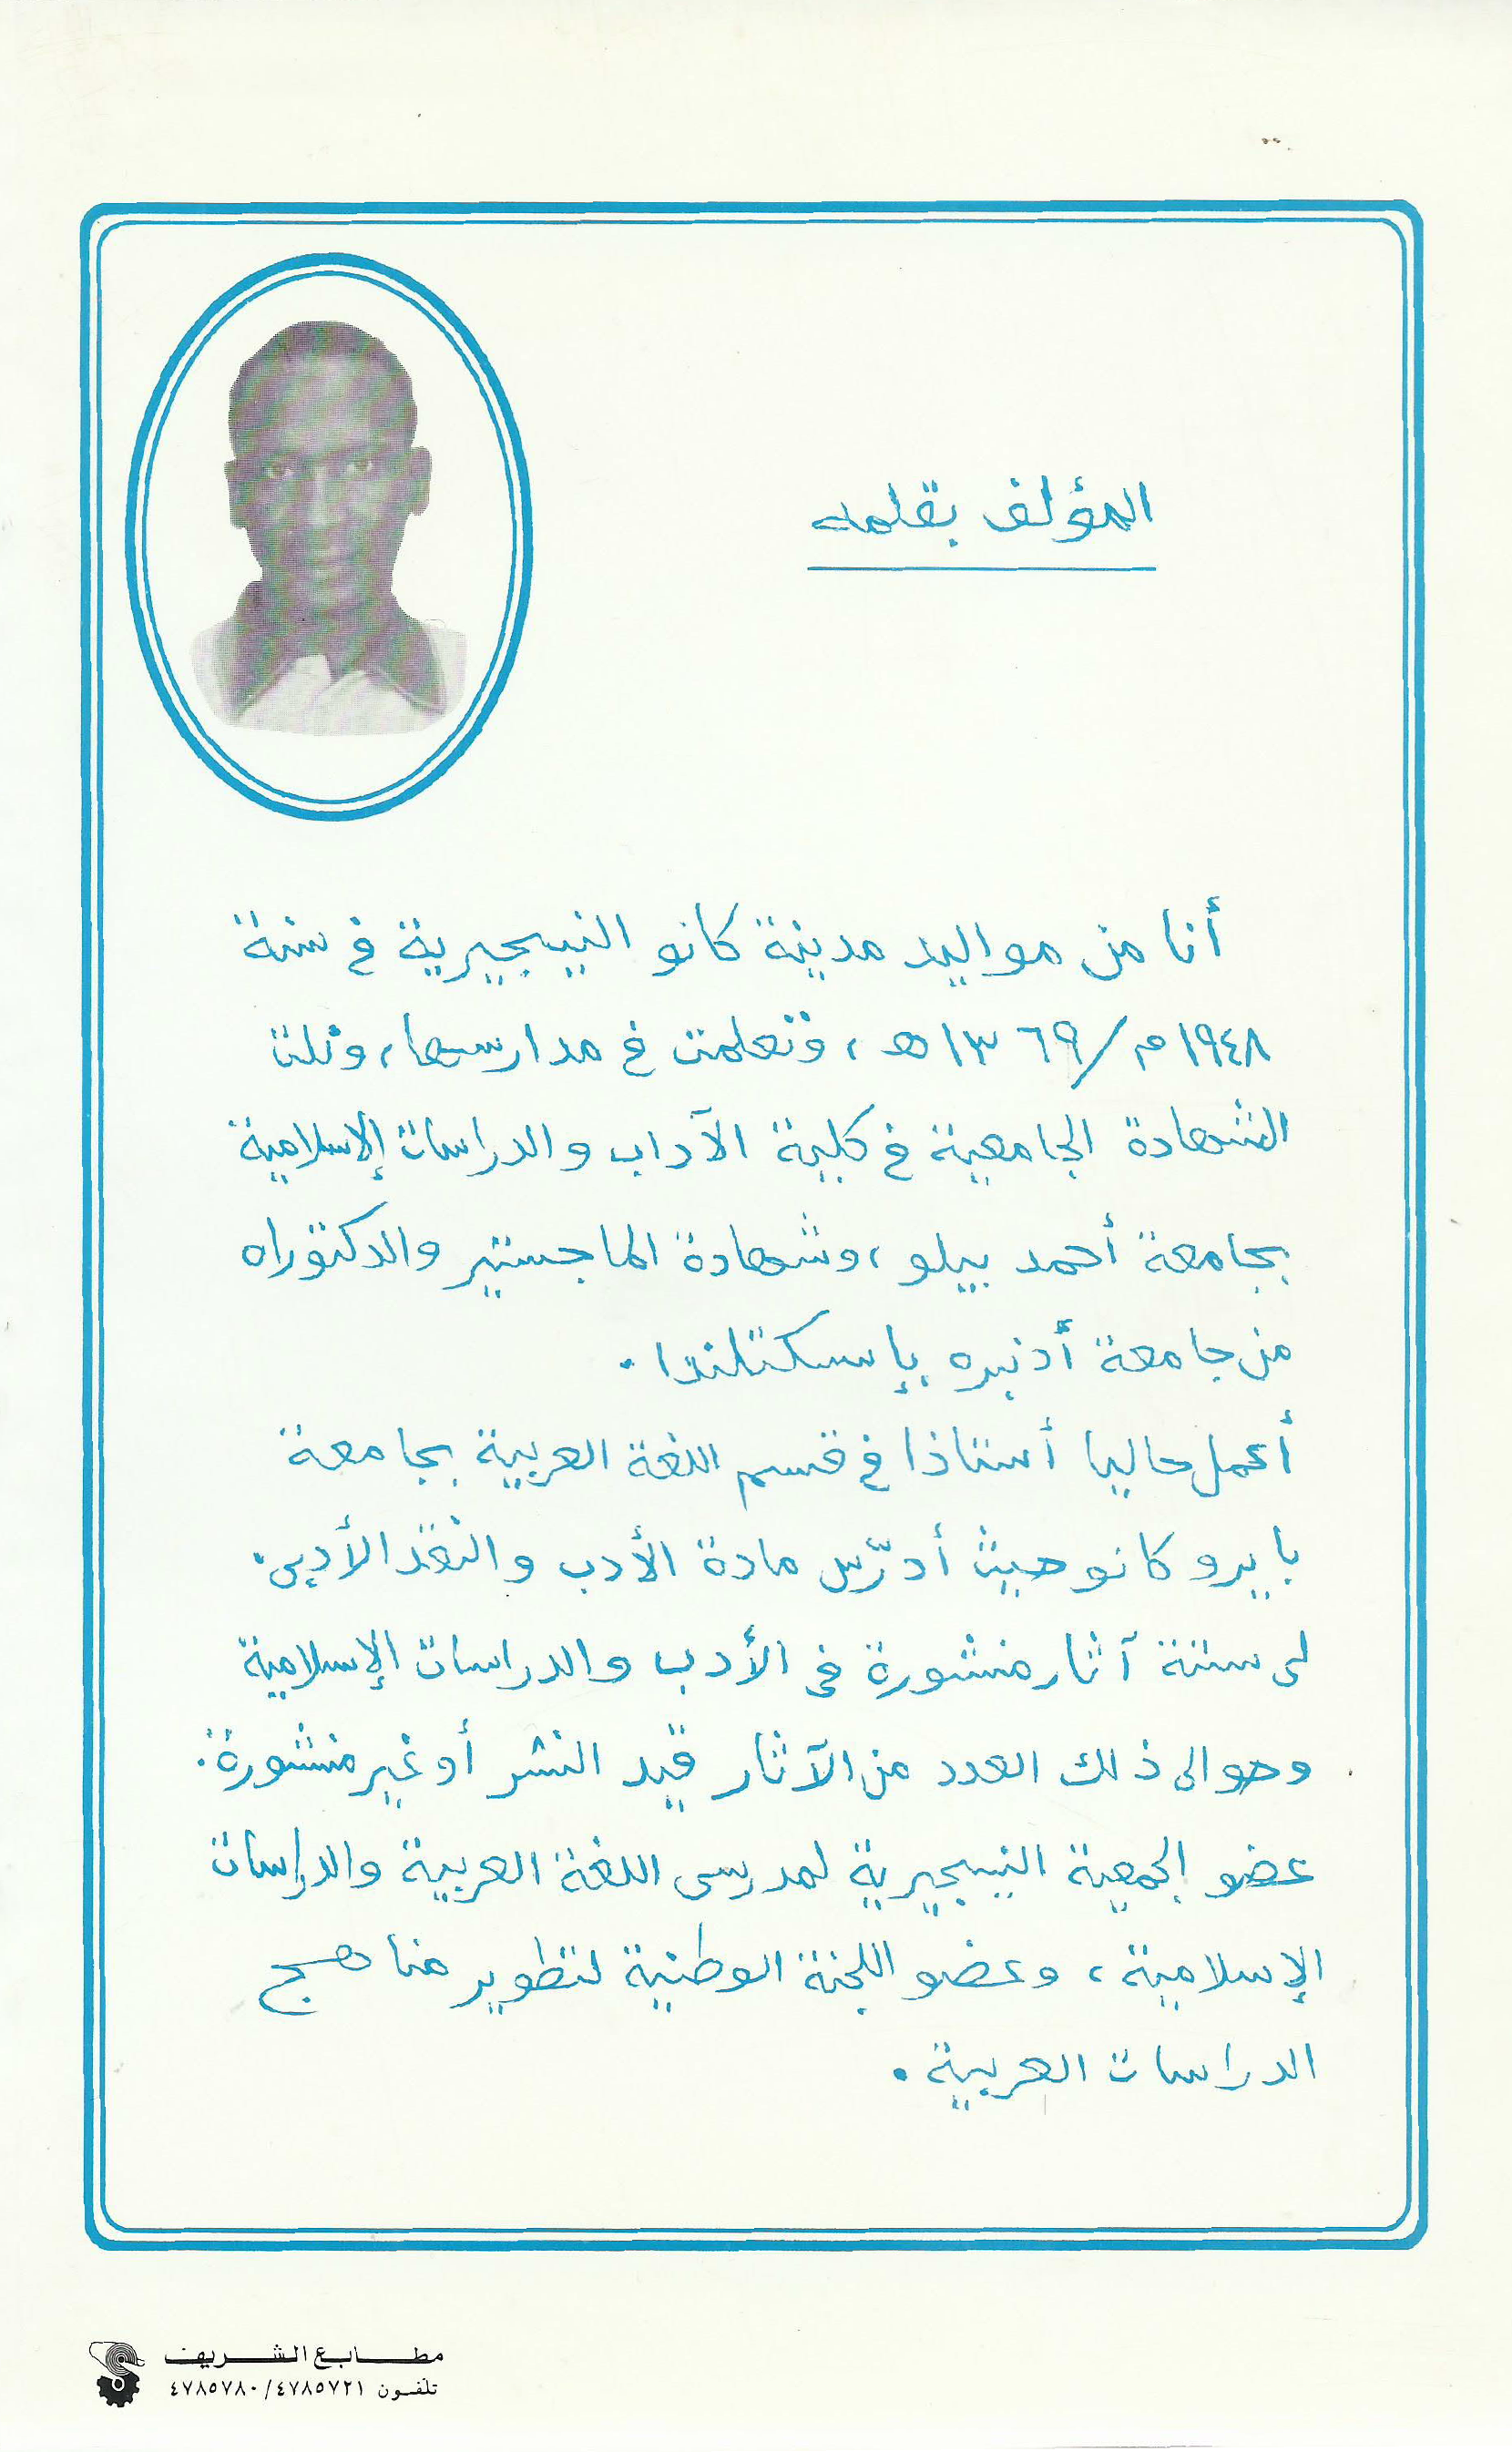 المؤلف بقلمه
أنا من مواليد مدينة كانو النيجيرية في سنة
١٩٤٨م/١٣٦٩هـ، وتعلمت في مدارسها، ونلت
الشهادة الجامعية في كلية الآداب والدراسات الإسلامية
بجامعة أحمد بيلو، وشهادة الماجستير والدكتوراه
من جامعة أدنبره بإسكتلندا.
أعمل حاليا أستاذا في قسم اللغة العربية بجامعة
بايرو كانو حيث أدرّس مادة الأدب والنقد الأدبي.
لى ستة آثار منشورة فى الأدب والدراسات الإسلامية
وحوالى ذلك العدد من الآثار قيد النشر أو غير منشورة.
عضو الجمعية النيجيرية لمدرسى اللغة العربية والدراسات
الإسلامية، وعضو اللجنة الوطنية لتطوير مناهج
الدراسات العربية.
مطابع الشريف
تلفون ٤٧٨٥٧٢١/٤٧٨٥٧٨٠